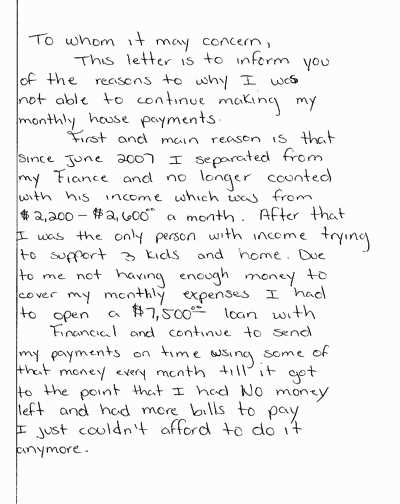 To whom it may concern,
This letter is to inform you
of the reasons to why I was
not able to continue making my
monthly house payments.
First and main reason is that
since June 2007 I separated from
my Fiance and no longer counted
with his income which was from
$2,200 - $2,600⁰⁰ a month. After that
I was the only person with income trying
to support 3 kids and home. Due
to me not having enough money to
cover my monthly expenses I had
to open a $7,500⁰⁰ loan with
Financial and continue to send
my payments on time using some of
that money every month till it got
to the point that I had NO money
left and had more bills to pay
I just couldn't afford to do it
anymore.